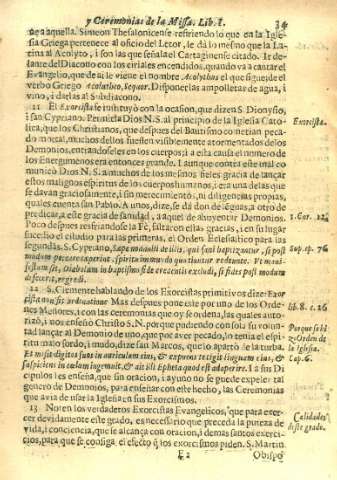 y Ceremonias de la Missa. Lib. I.
34
a aquella. Simeon Thesalonicense refiriendo lo que en la Iglesia
Griega pertenece al oficio del Letor, le dá lo mesmo que la La-
tina al Acolyto, i son las que señala el Cartaginense citado. Ir de-
lante del Diacono con los ciriales encendidos, quando va a cantar el
Evangelio, que de ai le viene el nombre Acolythus el que sigue, de el
verbo Griego Acolutheo, sequor. Disponer las ampolletas de agua, i
vino, i darlas al Subdiacono.
11 El Exorcista se instituyó con la ocasion, que dizen S. Dionysio,
i san Cypriano. Permitia Dios N.S. al principio de la Iglesia Cato-
lica, que los Christianos, que despues del Bautismo cometian peca-
do mortal, muchos dellos fuessen visiblemente atormentados de los
Demonios, entrandoseles en los cuerpos; i a esta causa el numero de
los Energumenos era entonces grande. I aunque contra este mal co-
municó Dios N. S. a muchos de los mesmos fieles gracia de lançar
estos malignos espiritus de los cuerpos humanos, i era una de las que
se davan graciosamente, i sin merecimiento, ni diligencias propias,
quales cuenta san Pablo. A unos, dize, se dá don de lenguas, a otro de
predicar, a este gracia de sanidad, a aquel de ahuyentar Demonios.
Poco despues resfriandose la Fè, faltaron ellas, i en su lugar
sucedio el estudio para las primeras, el Orden Eclesiastico para las
segundas. S. Cypriano, Sæpe
modum peccare cœperint, spiritu immundo quatiuntur redeunte. Vt mani-
festum sit, Diabolum in baptismo fide credentis excludi, si fides post modum
defecerit, regredi.
12 S. Clemente hablando de los Exorcistas primitivos dize: Exor
cista non est ordinatione Mas despues pone este por uno de los Orde-
nes Menores, i con las ceremonias que oy se ordena, las quales auto-
rizó, i nos enseñó Christo S.N. por que pudiendo con sola su volun-
tad lançar al Demonio de uno, que por aver pecado, lo tenia el espi-
ritu malo sordo, i mudo, dize san Marcos, que lo apartó de la turba
Et misit digitos suos in auriculam eius, & expuens tetigit linguam eius, &
suspiciens in cœlum ingemuit, & ait illi Epheta quod est adaperire. I a sus Di
cipulos les enseña, que sin oracion, i ayuno no se puede expeler tal
genero de Demonios, para enseñar con este hecho, las Ceremonias
que avia de usar la Iglesia en sus Exorcismos.
13 Noten los verdaderos Exorcistas Evangelicos, que para exer-
cer devidamente este grado, es necessario que preceda la pureza de
vida, i conciencia, que se alcança con oracion, i demas santos exerci-
cios, para que se consiga el efecto que los exorcismos piden. S. Martin
E 2
Obispo
Exorcista.
1. Cor. 12.
sup. ep. 76
lib. 8. c. 26
Porque se hi-
zo Orden de
la Iglesia.
Cap. 6.
Calidades
deste grado.